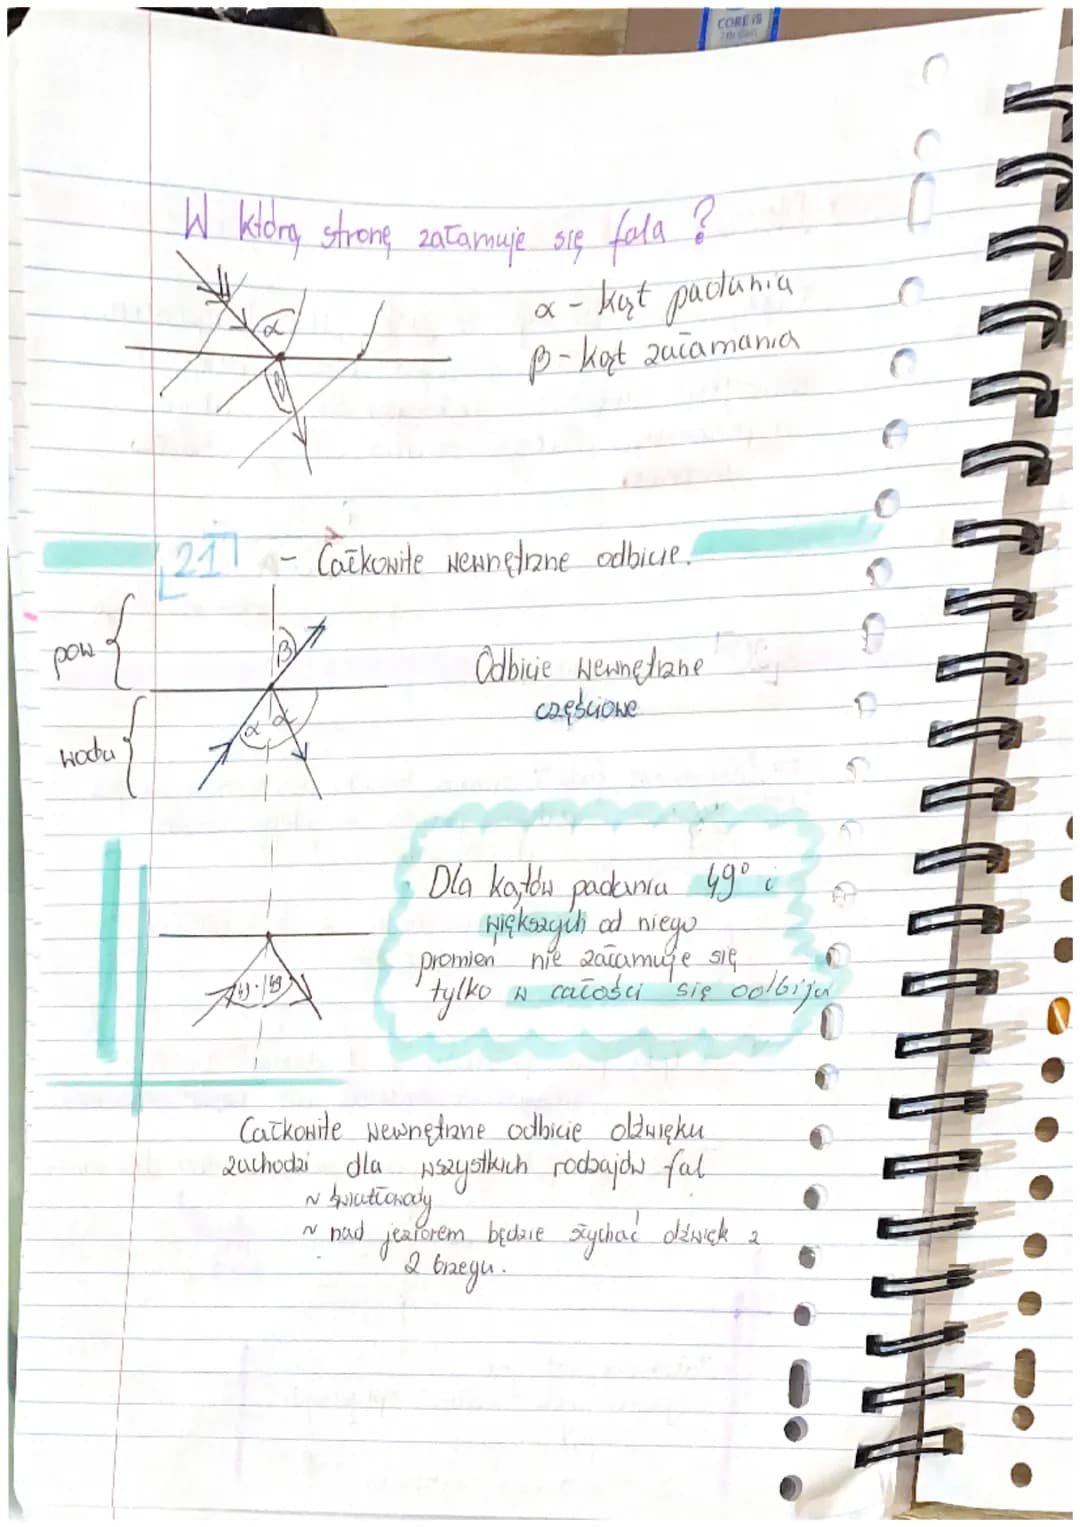 CORE i5
W którą stronę załamuje się fala ?
α
β
α - kąt padania
β - kąt załamania
21 - Całkowite wewnętrzne odbicie.
pow
β
woda
α α
Odbicie wewnętrzne
częściowe
Dla kątów padania 49° i
większych od niego
promien nie załamuje się
tylko w całości się odbija
49 · 49
Całkowite wewnętrzne odbicie dźwięku
zachodzi dla wszystkich rodzajów fal
~ światłowody
~ nad jeziorem będzie słychać dźwięk z
2 brzegu.